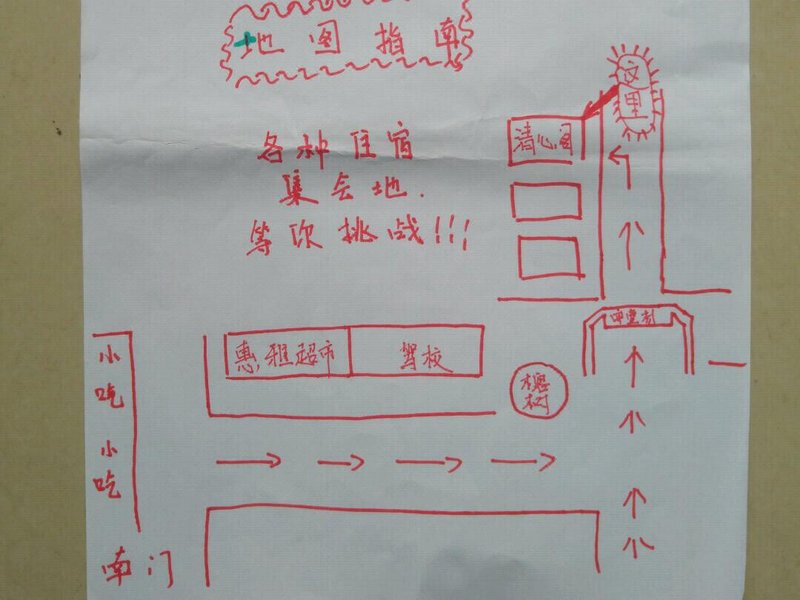 地图指南
这里
清心阁
各种住宿
集会地.
等你挑战!!!
惠雅超市
驾校
槐树
小吃
小吃
南门